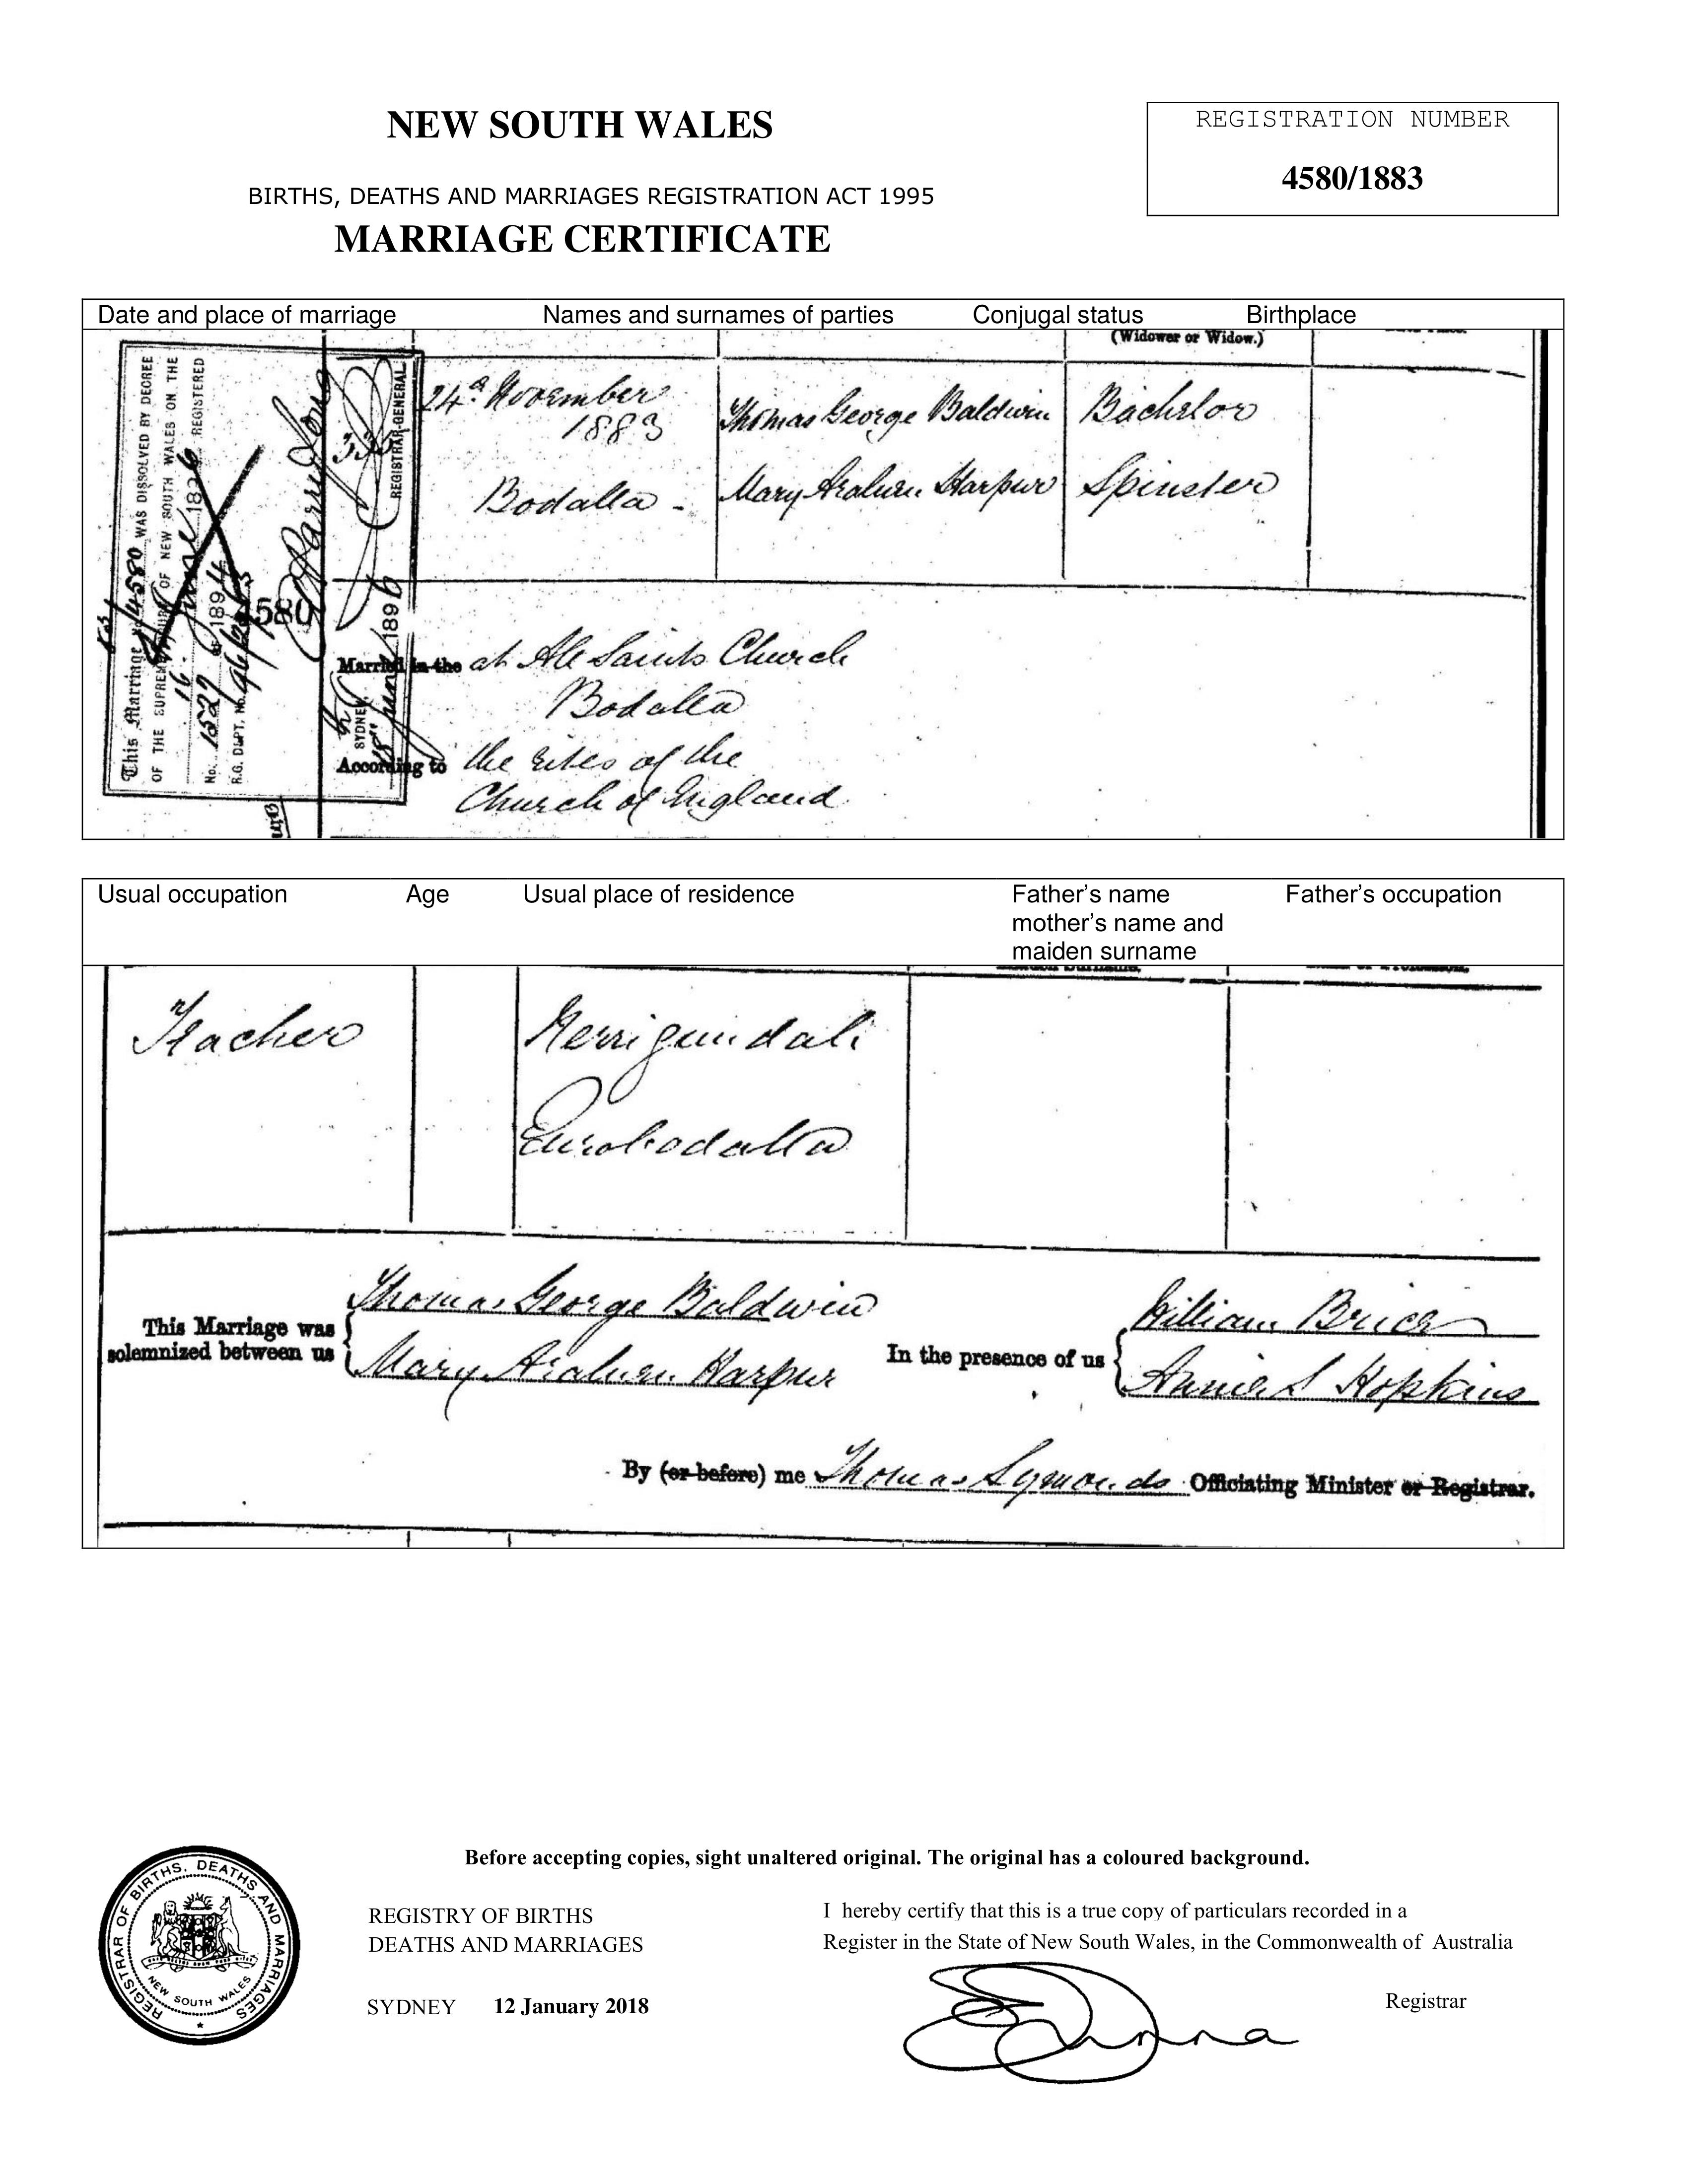 NEW SOUTH WALES
REGISTRATION NUMBER
4580/1883
BIRTHS, DEATHS AND MARRIAGES REGISTRATION ACT 1995
MARRIAGE CERTIFICATE
Date and place of marriage Names and surnames of parties Conjugal status Birthplace
(Widower or Widow.)
This Marriage 4580 WAS DISSOLVED BY DECREE
OF THE SUPREME COURT OF NEW SOUTH WALES ON THE
16 June 1896 REGISTERED
No. 1527 of 1894
R.G. DEPT. No. 96/
4580
335
REGISTRAR-GENERAL
SYDNEY, 18 June 1896
24th November
1883
Bodalla -
Thomas George Baldwin Bachelor
Mary Araluen Harpur Spinster
Married in the at All Saints Church
Bodalla
According to the rites of the
Church of England
Usual occupation Age Usual place of residence Father's name Father's occupation
mother's name and
maiden surname
Teacher Nerrigundah
Eurobodalla
This Marriage was
solemnized between us
Thomas George Baldwin
Mary Araluen Harpur
In the presence of us
William Brice
Annie S Hopkins
By (or before) me Thomas Symonds Officiating Minister or Registrar.
Before accepting copies, sight unaltered original. The original has a coloured background.
REGISTRAR OF BIRTHS, DEATHS AND MARRIAGES
NEW SOUTH WALES
REGISTRY OF BIRTHS
DEATHS AND MARRIAGES
SYDNEY 12 January 2018
I hereby certify that this is a true copy of particulars recorded in a
Register in the State of New South Wales, in the Commonwealth of Australia
Registrar